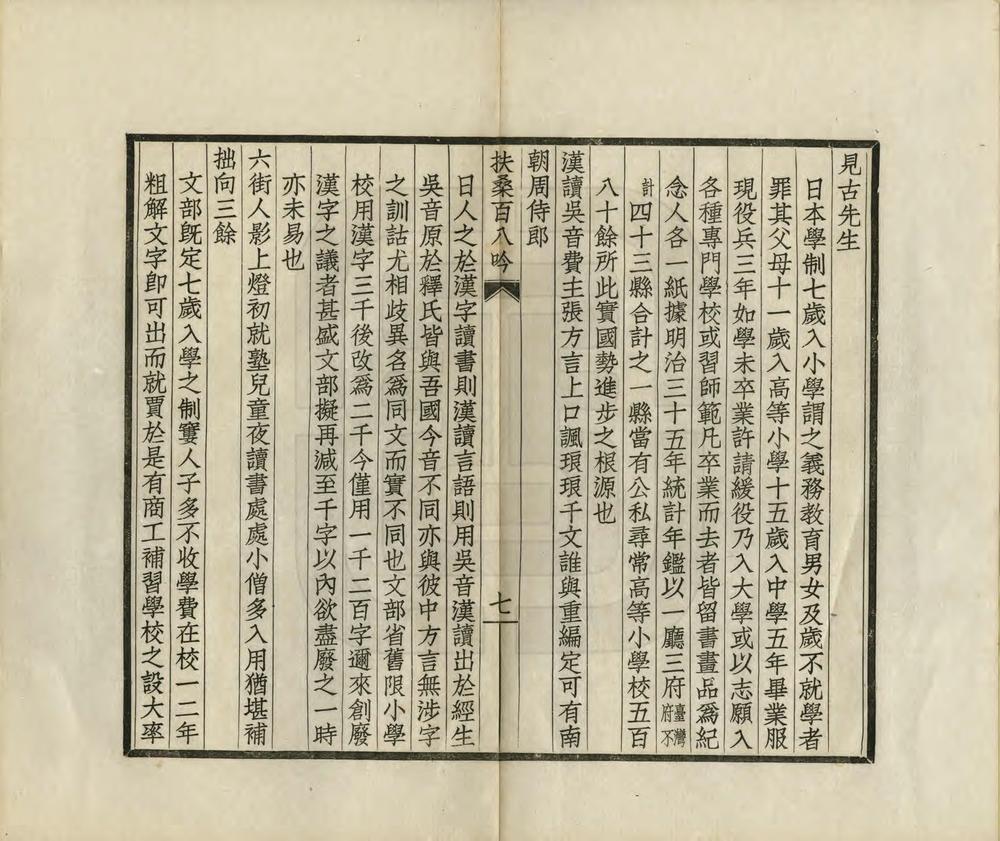 見古先生
日本學制七歲入小學謂之義務教育男女及歲不就學者
罪其父母十一歲入高等小學十五歲入中學五年畢業服
現役兵三年如學未卒業許請緩役乃入大學或以志願入
各種專門學校或習師範凡卒業而去者皆留書畫品爲紀
念人各一紙據明治三十五年統計年鑑以一廳三府臺灣府不
計四十三縣合計之一縣當有公私尋常高等小學校五百
八十餘所此實國勢進步之根源也
漢讀吳音費主張方言上口諷琅琅千文誰與重編定可有南
朝周侍郎
扶桑百八吟
七
日人之於漢字讀書則漢讀言語則用吳音漢讀出於經生
吳音原於釋氏皆與吾國今音不同亦與彼中方言無涉字
之訓詁尤相歧異名爲同文而實不同也文部省舊限小學
校用漢字三千後改爲二千今僅用一千二百字邇來創廢
漢字之議者甚盛文部擬再減至千字以內欲盡廢之一時
亦未易也
六街人影上燈初就塾兒童夜讀書處處小僧多入用猶堪補
拙向三餘
文部旣定七歲入學之制窶人子多不收學費在校一二年
粗解文字卽可出而就賈於是有商工補習學校之設大率